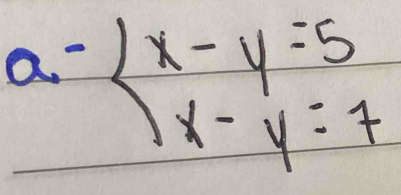 a- { x - y = 5
x - y = 7